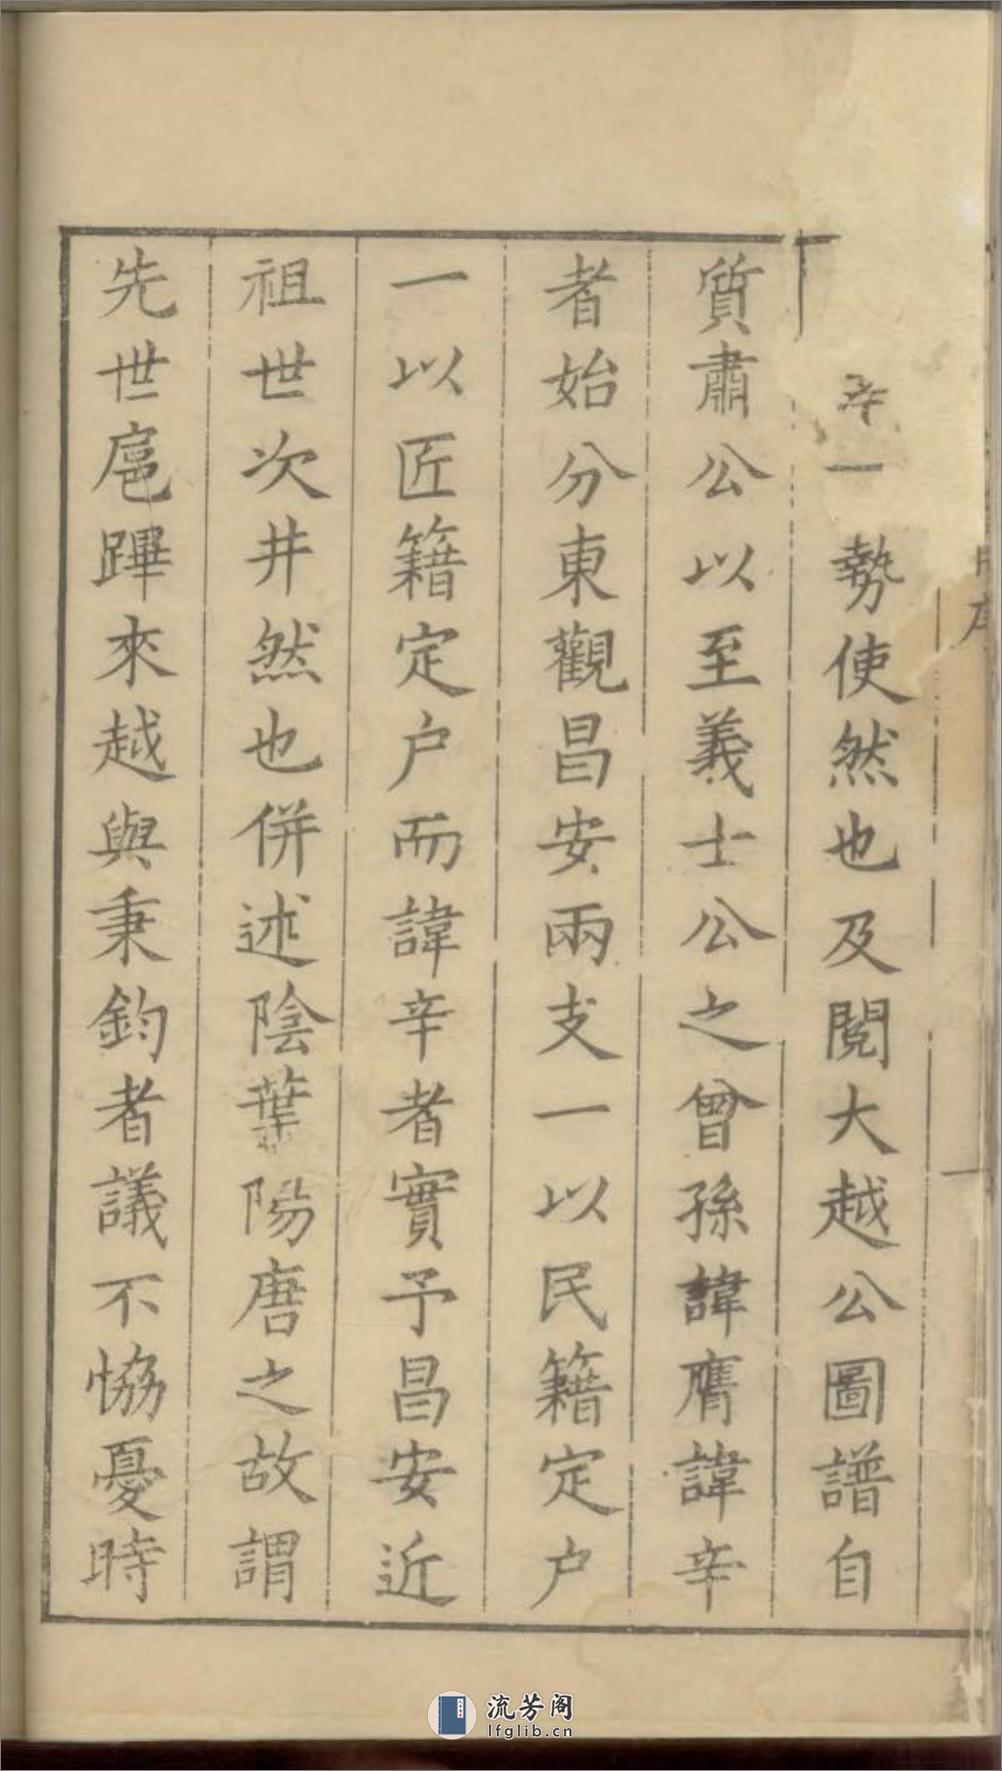 一勢使然也及閱大越公圖譜自
質肅公以至義士公之曾孫諱膺諱辛
者始分東觀昌安兩支一以民籍定户
一以匠籍定户而諱辛者實予昌安近
祖世次井然也併述陰葉陽唐之故謂
先世扈蹕來越與秉鈞者議不恊憂時
流芳阁
lfglib.cn